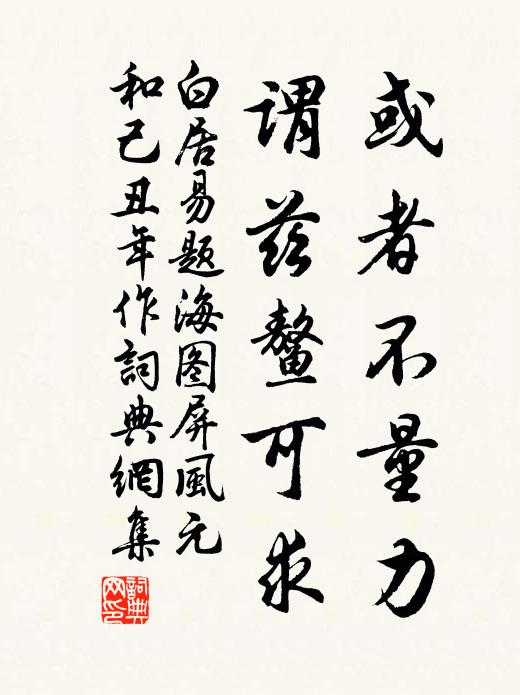 或者不量力
谓兹鳌可求
白居易题海图屏风元
和己丑年作詞典網集
詞典网印